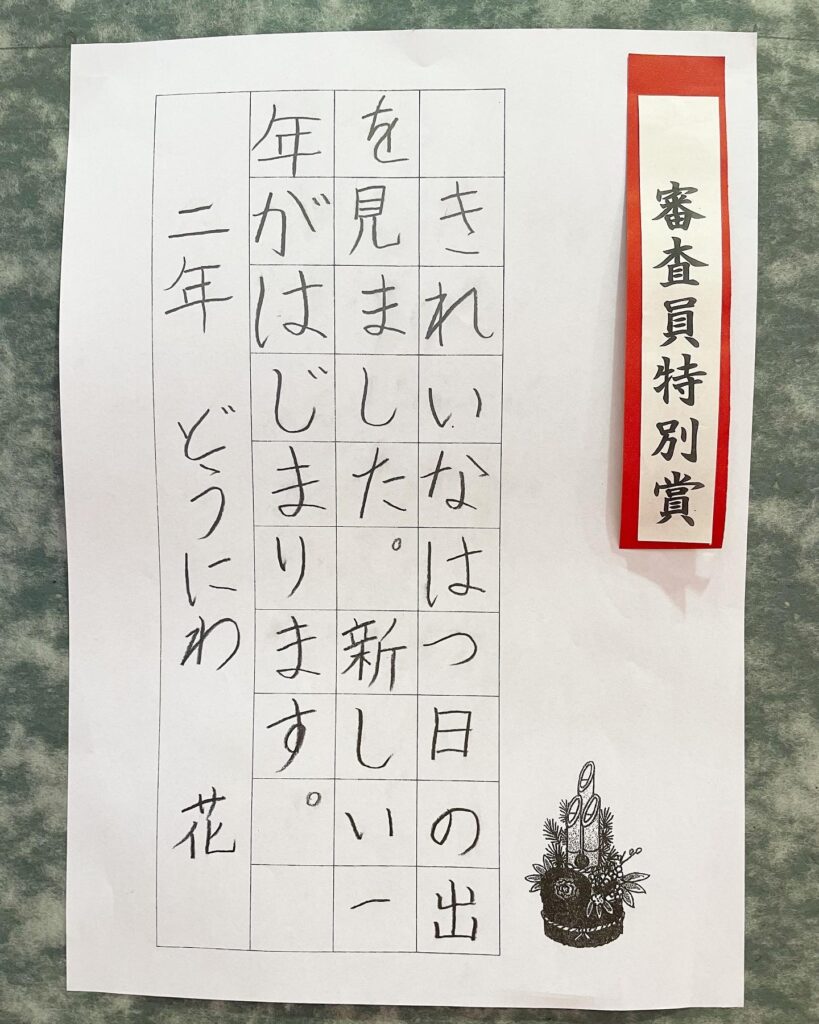 審査員特別賞
きれいなはつ日の出
を見ました。新しい一
年がはじまります。
二年 どうにわ 花